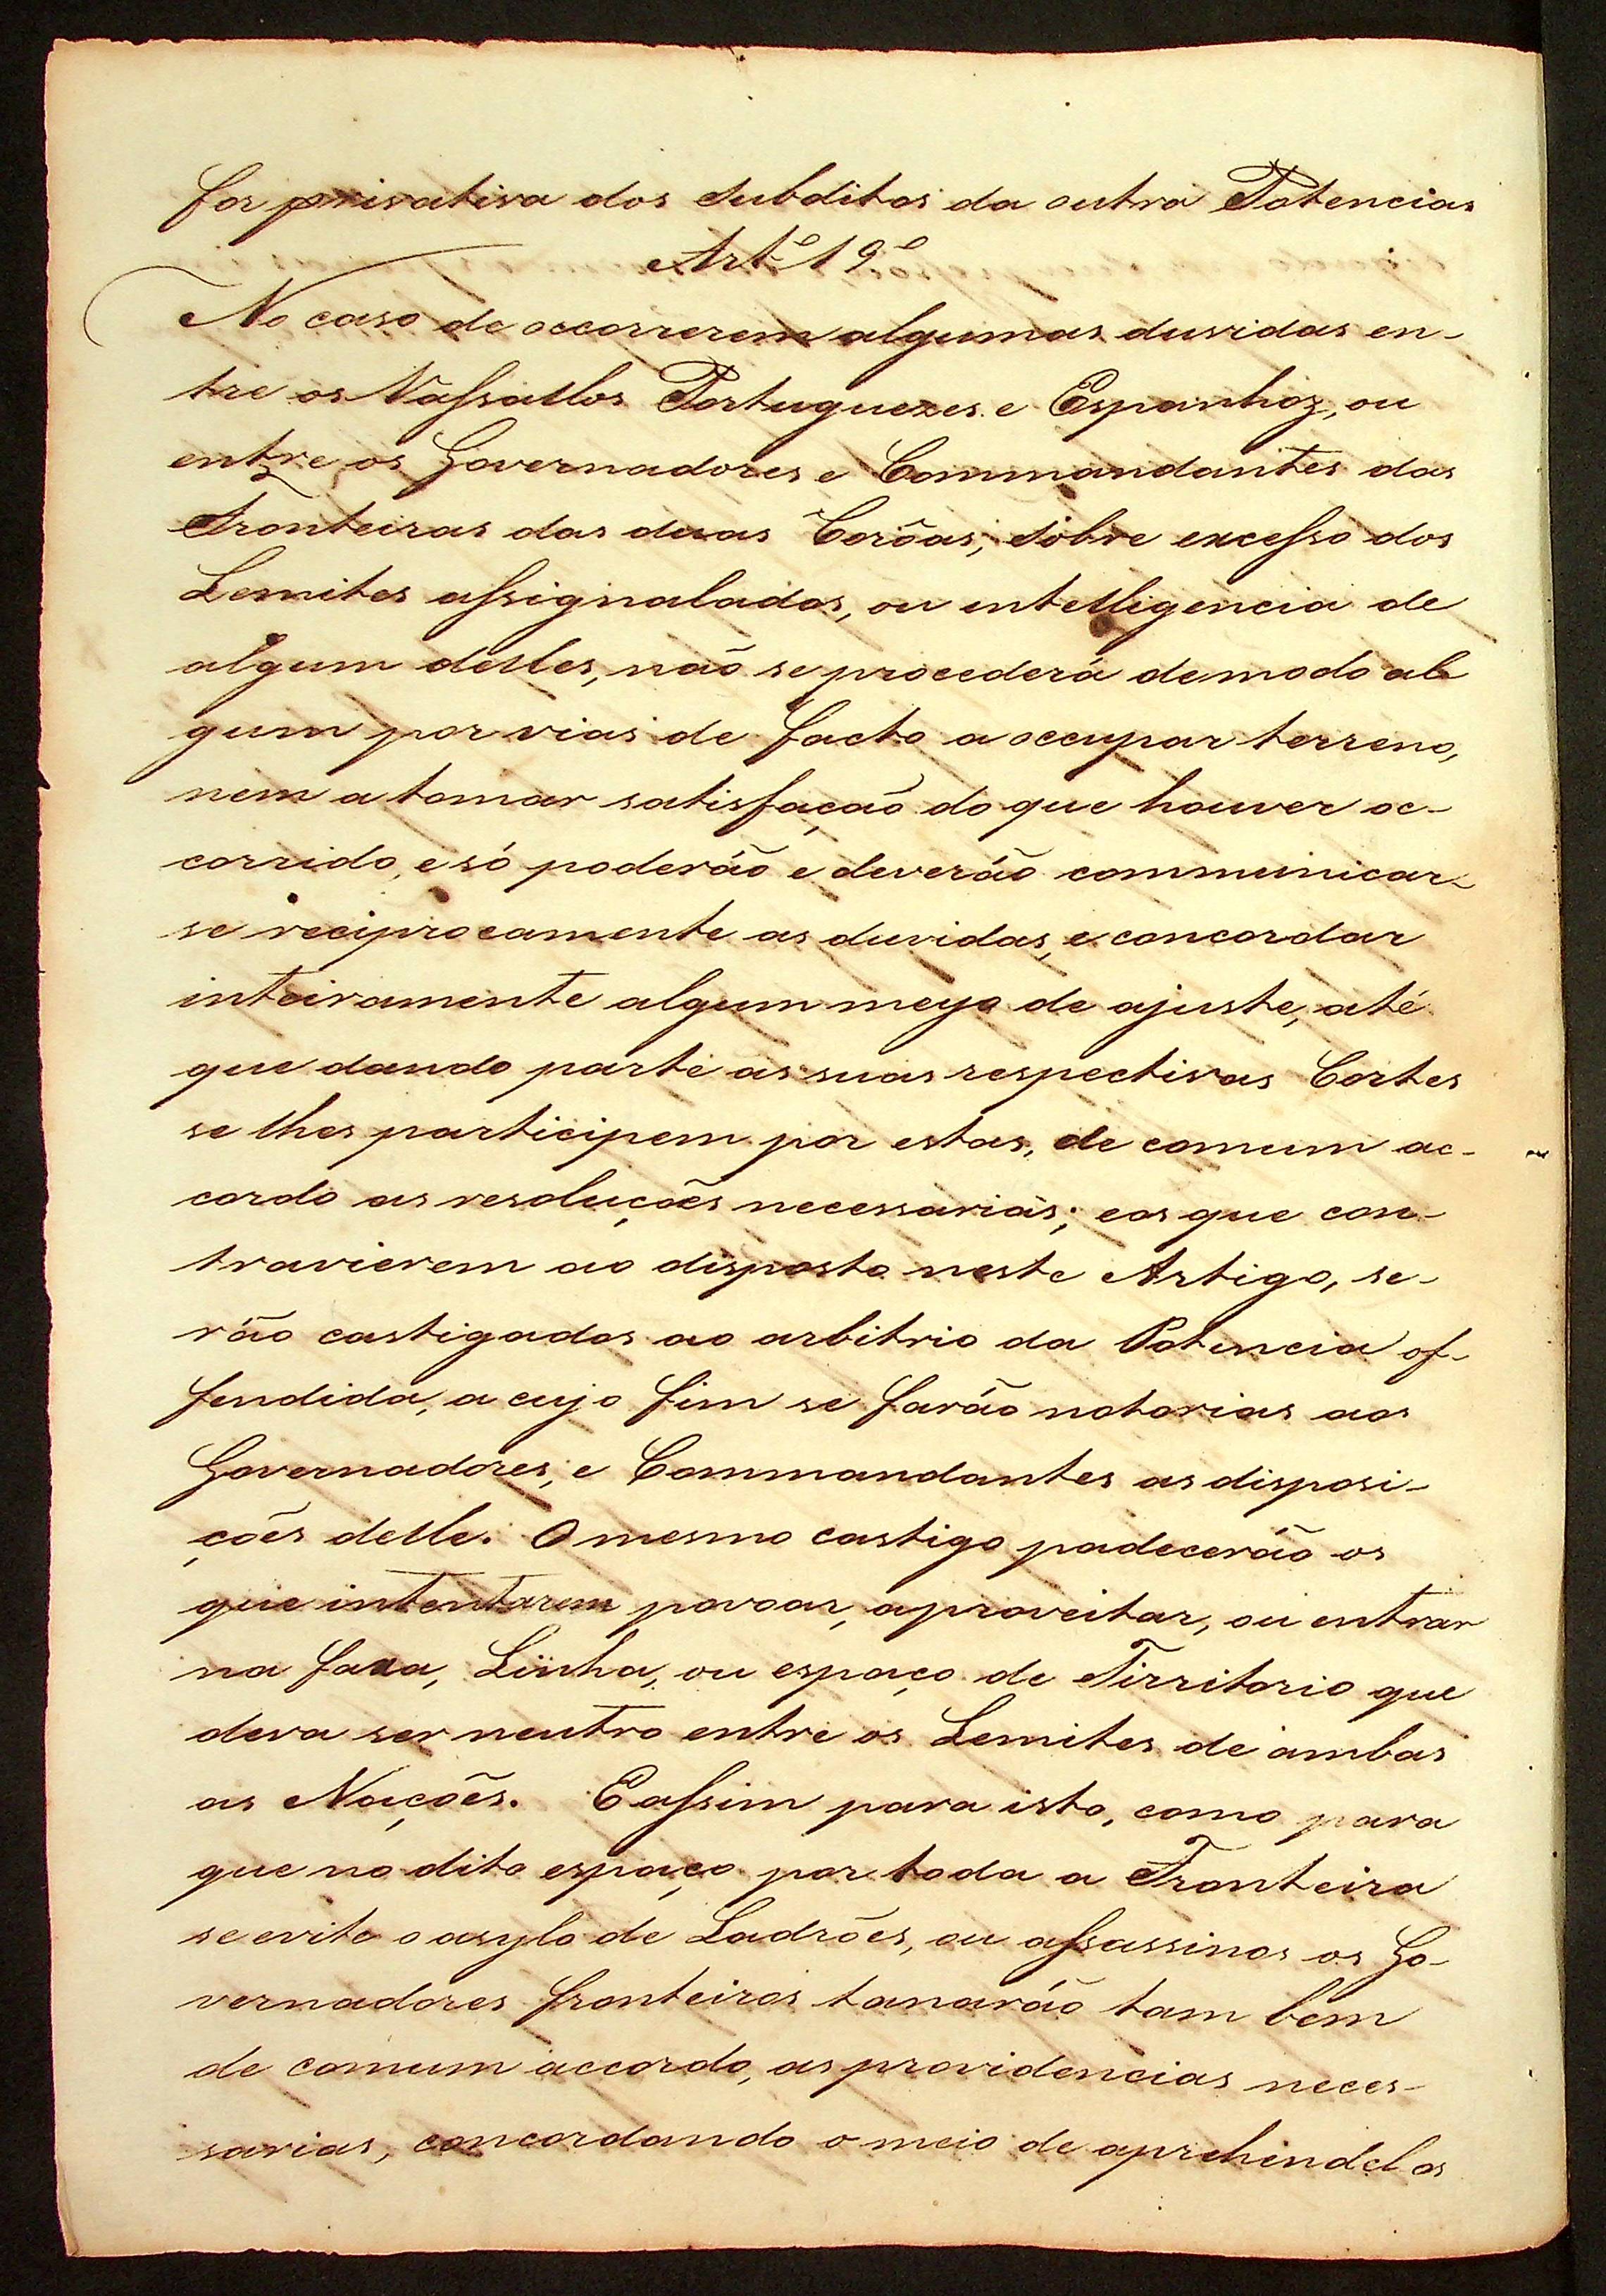 for privativa dos Subditos da outra Potencias
Artº 19º
No caso de occorrerem algumas duvidas en-
tre os Vassallos Portuguezes e Espanhoz, ou
entre os Governadores e Commandantes das
Fronteiras das duas Corôas, sobre excesso dos
Lemites assignalados, ou entelligencia de
algum delles, não se procederá de modo al
gum por vias de facto a occupar terreno,
nem a tomar satisfação do que houver oc-
corrido, e só poderão e deverão communicar-
se reciprocamente as duvidas, e concordar
inteiramente algum meyo de ajuste, até
que dando parte as suas respectivas Cortes
se lhes participem por estas, de comum ac-
cordo as resoluções necessarias; e os que con-
travierem ao disposto neste Artigo, se-
rão castigados ao arbitrio da Potencia of-
fendida, a cujo fim se farão notorias aos
Governadores, e Commandantes as disposi-
ções delle. O mesmo castigo padecerão os
que intentarem povoar, aproveitar, ou entrar
na faxa, Linha, ou espaço de Tirritorio que
deva ser neutro entre os Lemites de ambas
as Nações. E assim para isto, como para
que no dito espaço por toda a Fronteira
se evite o asylo de Ladrões, ou assassinos os Go-
vernadores fronteiros tanarão tam bem
de comum accordo, as providencias neces-
sarias, concordando o meio de aprehendel os